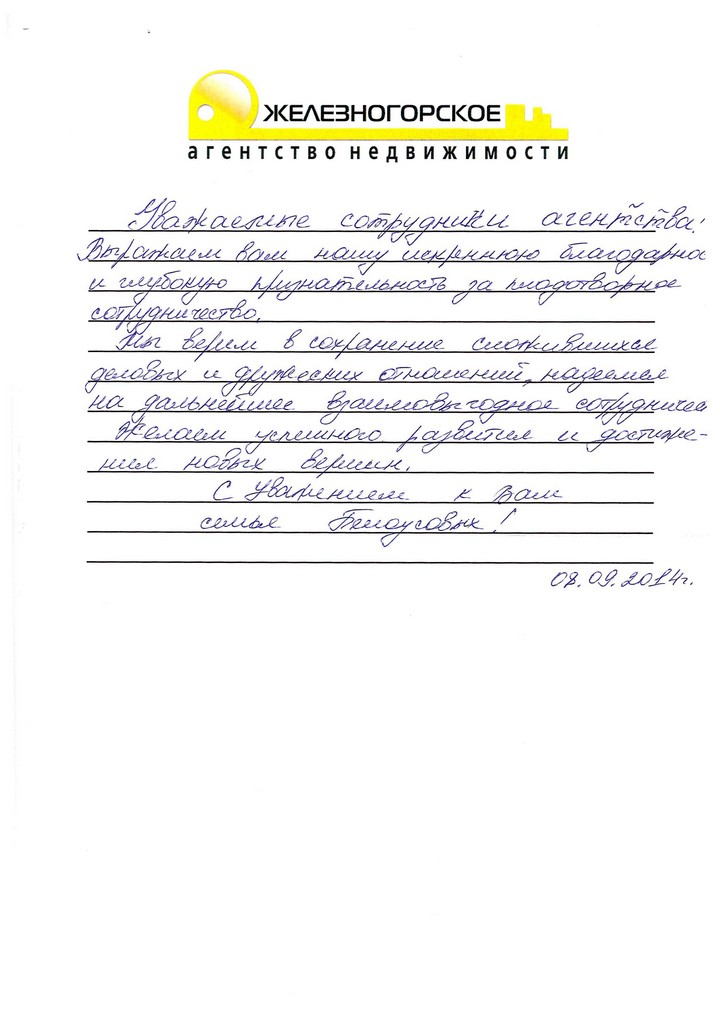 ЖЕЛЕЗНОГОРСКОЕ
агентство недвижимости
Уважаемые сотрудники агентства!
Выражаем вам нашу искреннюю благодарно
и глубокую признательность за плодотворное
сотрудничество.
Мы верим в сохранение сложившихся
деловых и дружеских отношений, надеемся
на дальнейшее взаимовыгодное сотрудничес
Желаем успешного развития и достиже-
ния новых вершин.
С Уважением к Вам
семья Белоусовых!
08.09.2014г.